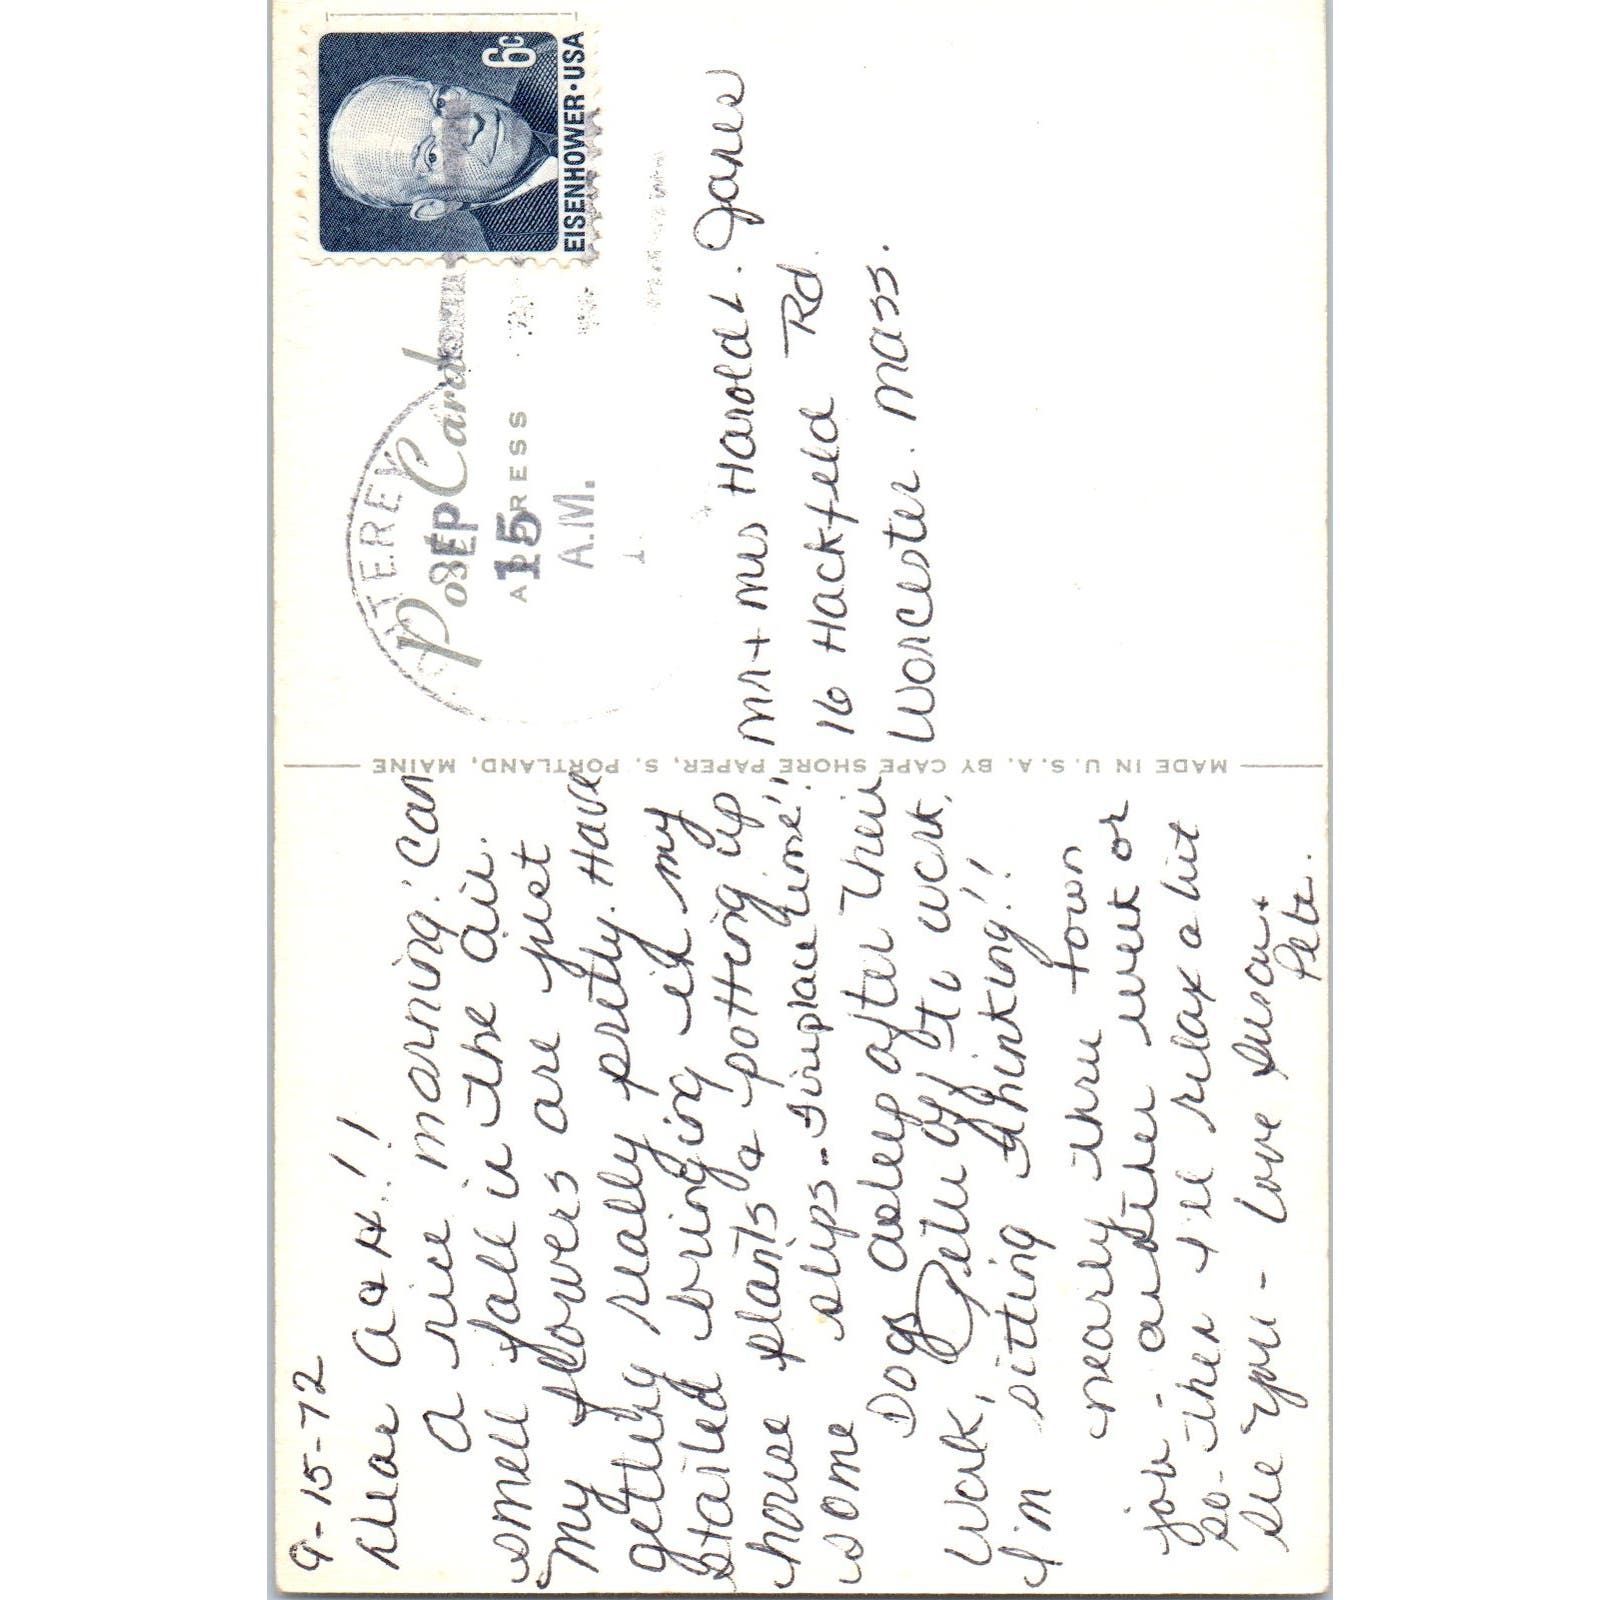 9-15-72
Dear A & H!!
A nice morning! Can
smell fall in the air.
My flowers are just
getting really pretty. Have
started bringing in my
house plants & potting up
some slips - Fireplace time!!
Dogs asleep after their
work, Pete off to work,
I'm sitting thinking!!
nearly thru town
job - another week or
so - then I'll relax a bit
See you - Love Susa +
Pete.
MADE IN U.S.A. BY CAPE SHORE PAPER, S. PORTLAND, MAINE
Post Card
ADDRESS
TEREY
SEP
15
A.M.
6c
EISENHOWER·USA
Mr + Mrs Harold. Jones
16 Hackfeld Rd.
Worcester. Mass.